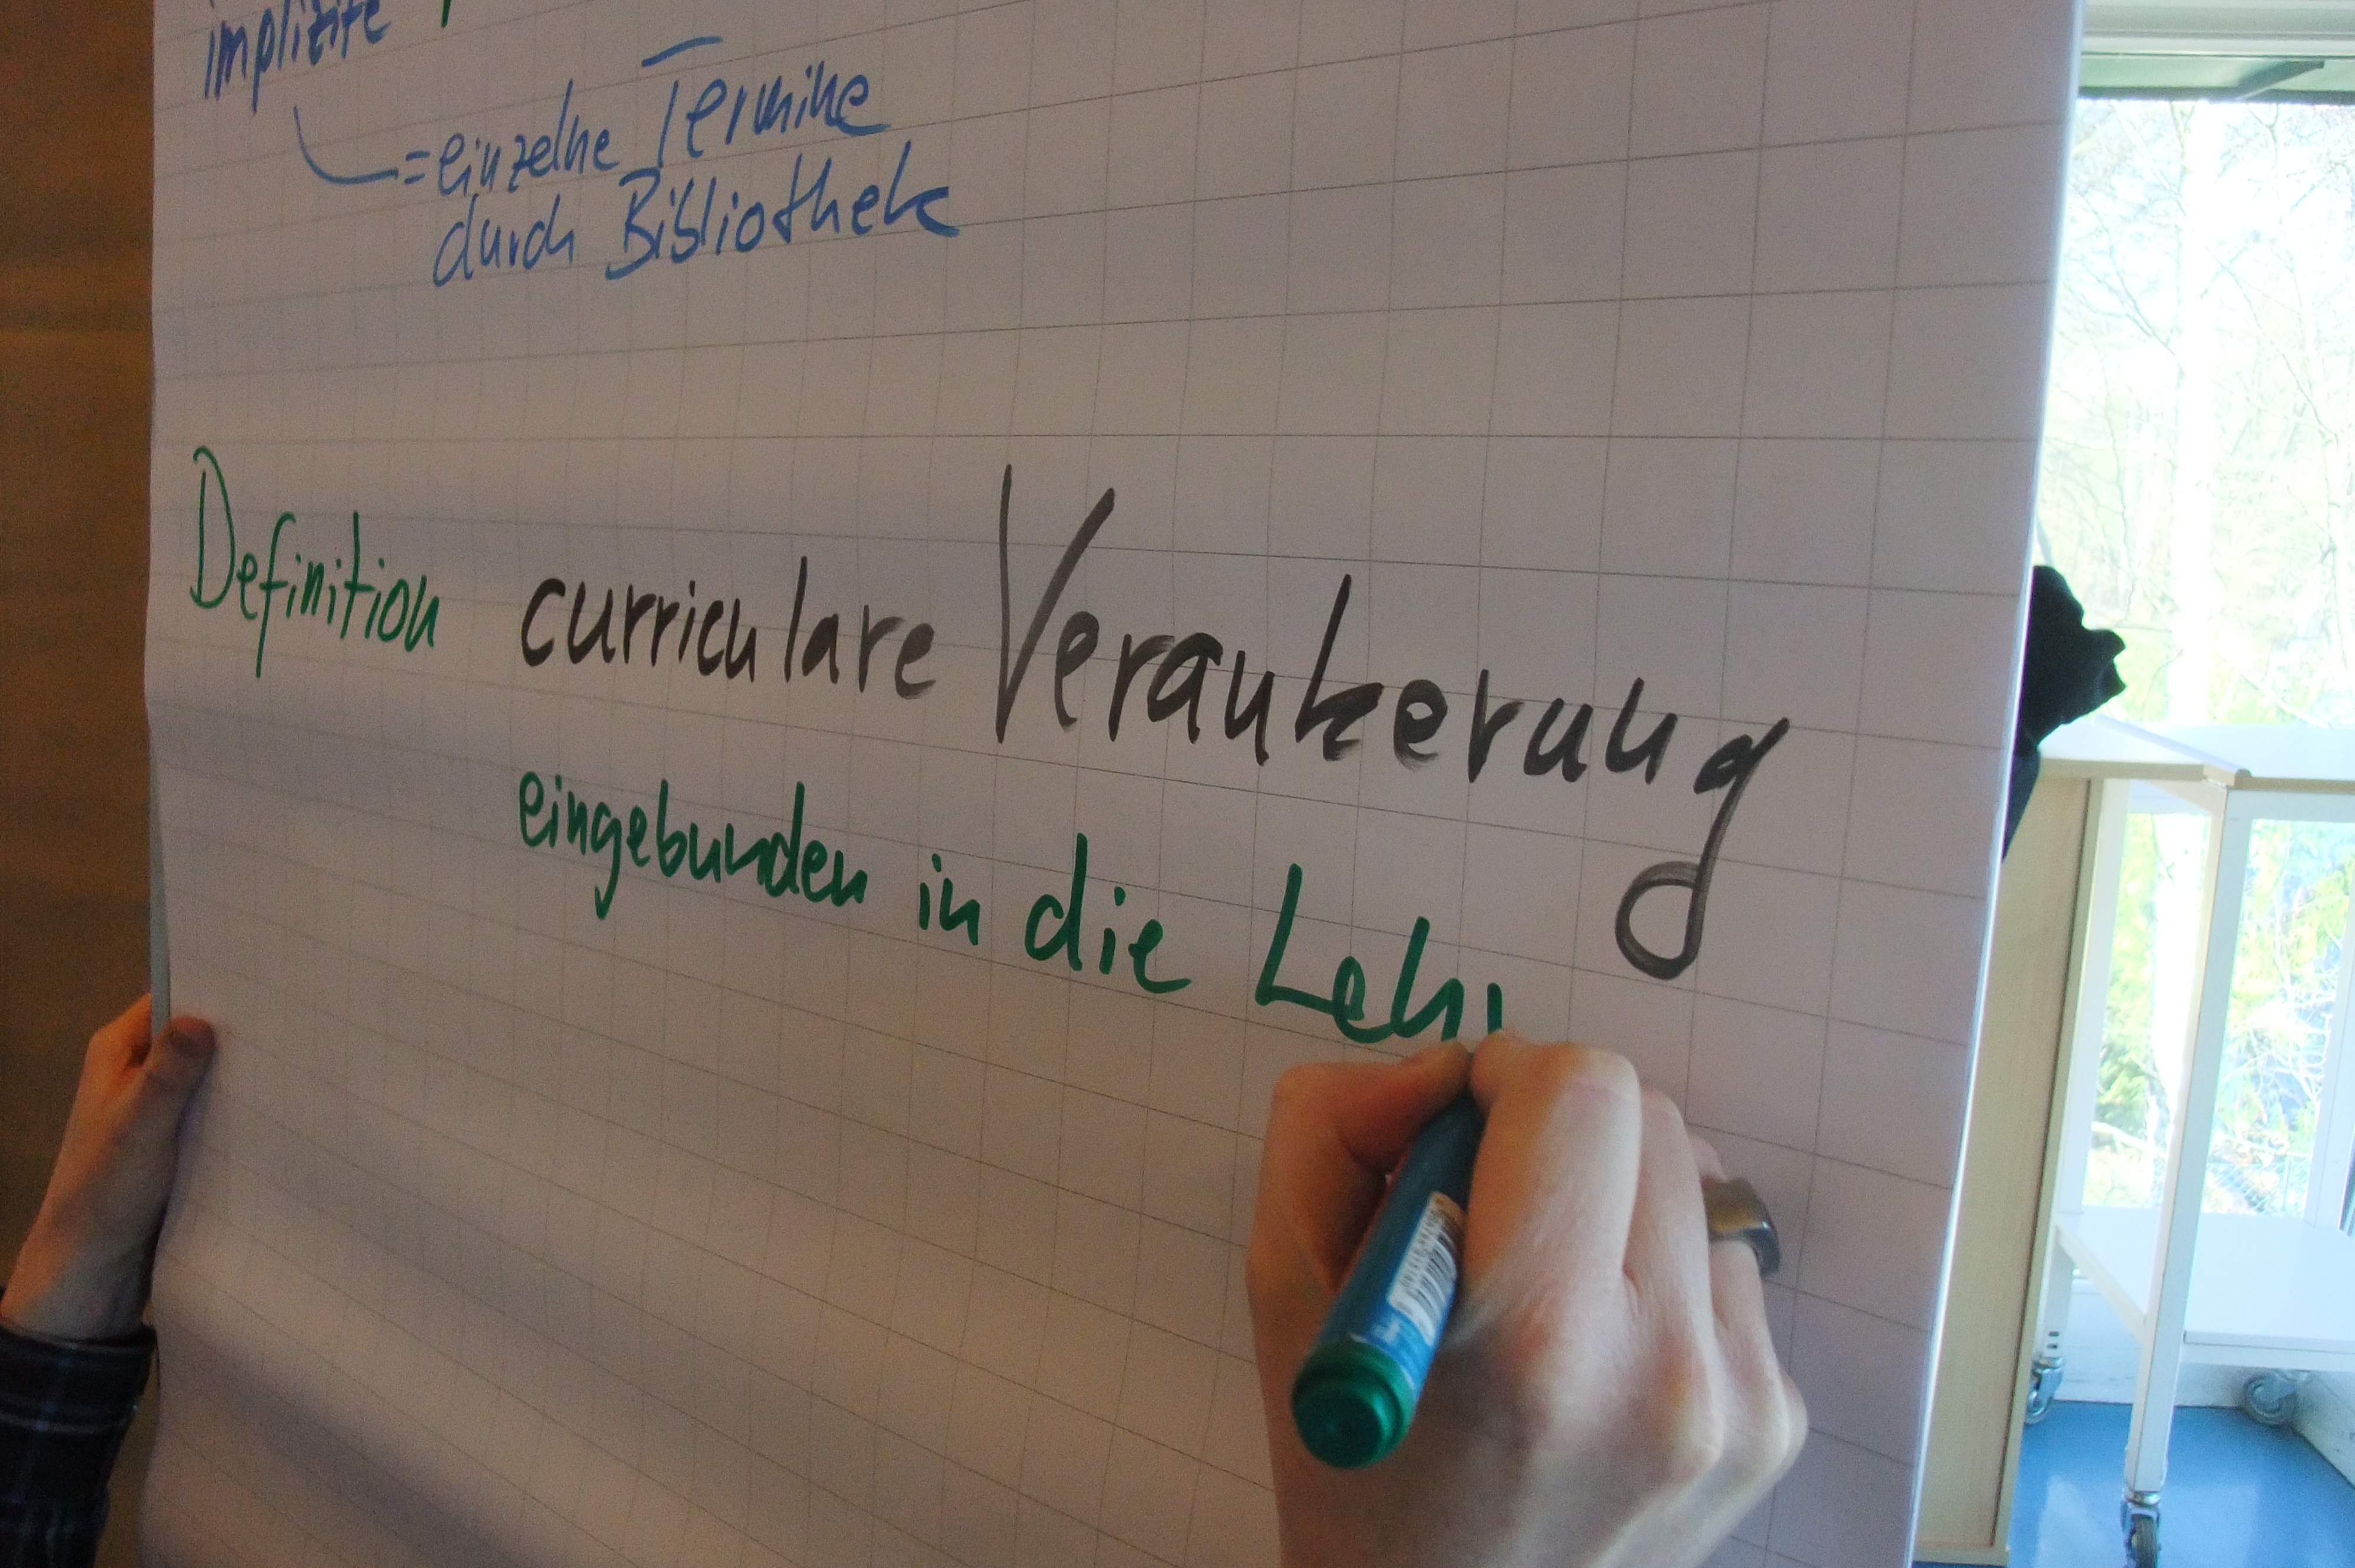 implizite
= einzelne Termine
durch Bibliothek
Definition curriculare Verankerung
eingebunden in die Lehr